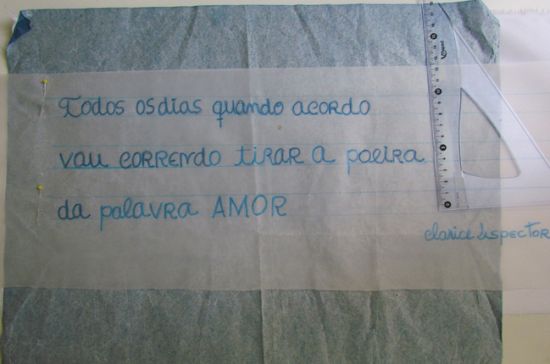 Todos os dias quando acordo
vou correndo tirar a poeira
da palavra AMOR
clarice Lispector